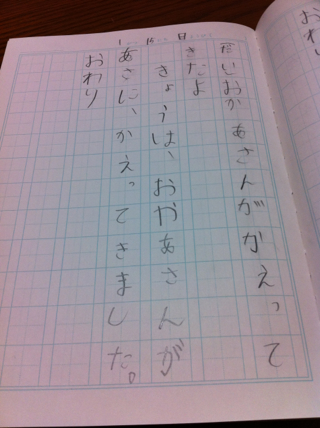 だいおかあさんががえって
きたよ
きょうは、おやあさんが
あさに、かえってきました。
おわり